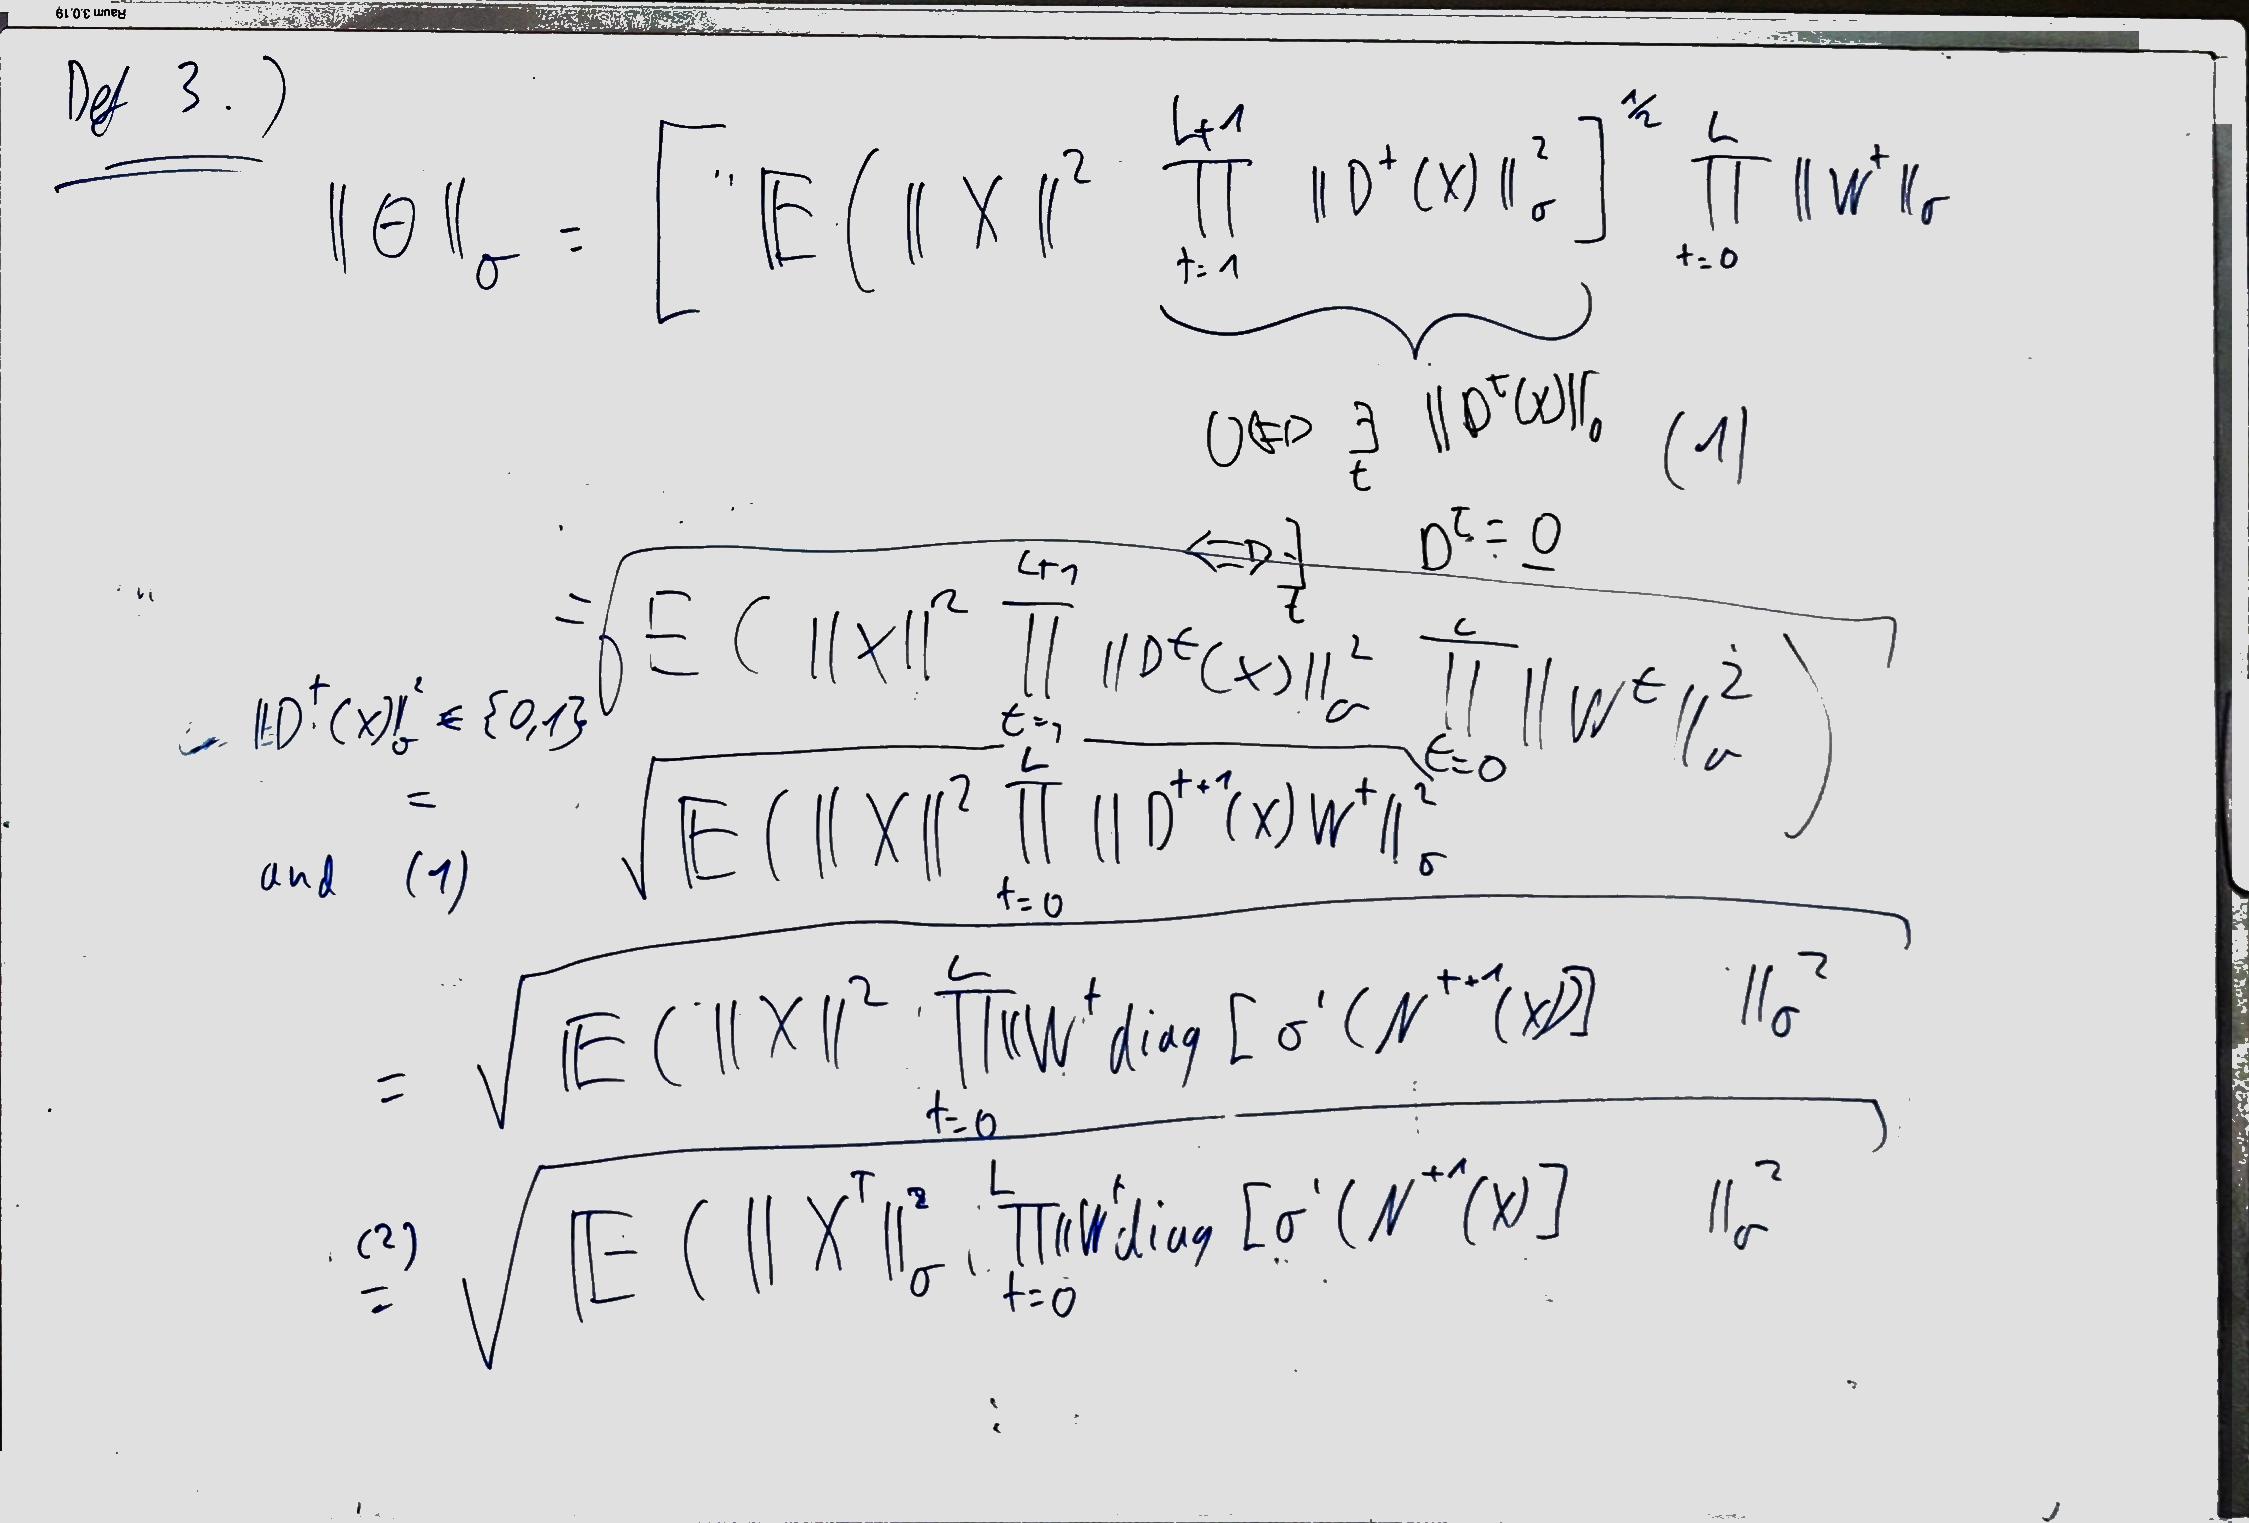 Raum 3.0.19
Def 3.)
‖Θ‖_σ = [ "𝔼(‖X‖² ∏_{t=1}^{L+1} ‖D^t(X)‖_σ² ]^{1/2} ∏_{t=0}^{L} ‖W^t‖_σ
0 ⇔ ∃_t ‖D^t(X)‖_σ (1)
⇔ ∃_t D^t = 0
= √𝔼(‖X‖² ∏_{t=1}^{L+1} ‖D^t(X)‖_σ² ∏_{t=0}^{L} ‖W^t‖_σ²)
‖D^t(X)‖_σ² ∈ {0,1}
= √𝔼(‖X‖² ∏_{t=0}^{L} ‖D^{t+1}(X) W^t‖_σ²
and (1)
= √𝔼(‖X‖² · ∏_{t=0}^{L} ‖W^t diag[σ'(N^{t+1}(X))] ‖_σ²
(2) = √𝔼(‖X^T‖_σ² · ∏_{t=0}^{L} ‖W^t diag[σ'(N^{t+1}(X)] ‖_σ²